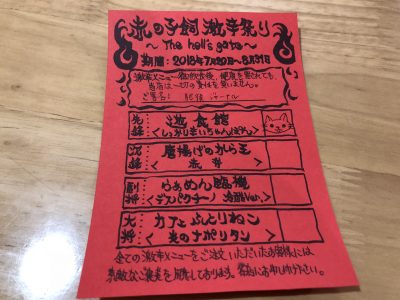 赤の子飼 激辛祭り
～The hell's gate～
期間：2018年7月20日～8月31日
激辛メニュー御飲食後、健康を害されても、
当店は一切の責任を負いません。
ご署名：
先鋒：遊食館
＜しっかりまいちゃんぽん＞
次鋒：唐揚げのから王
＜
副将：らぁめん臨機
＜デスパクチー 冷麺Ver.＞
大将：カフェふとりねこ
＜炎のナポリタン＞
全ての激辛メニューをご注文いただいたお客様には
素敵なご褒美を用意しております。お申し付け下さい。